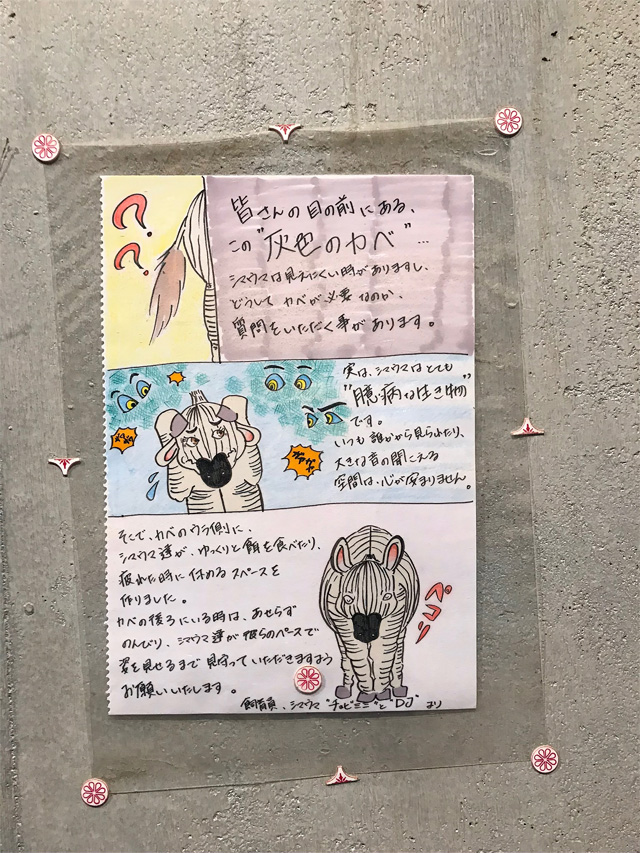 ??
皆さんの目の前にある、
この"灰色のカベ"...
シマウマは見えにくい時がありますし、
どうして カベが必要なのか、
質問をいただく事があります。
実は、シマウマはとても
"臆病な生き物"
です。
いつも誰かから見られたり、
大きな音の聞こえる
空間は、心が安まりません。
ガヤガヤ
そこで、カベのウラ側に、
シマウマ達が、ゆっくりと餌を食べたり、
疲れた時に休めるスペースを
作りました。
カベの後ろにいる時は、あせらず
のんびり、シマウマ達が彼らのペースで
姿を見せるまで見守っていただきますよう
お願いいたします。
ペコリ
飼育員、シマウマ"チョビミミ"と"DJ"より